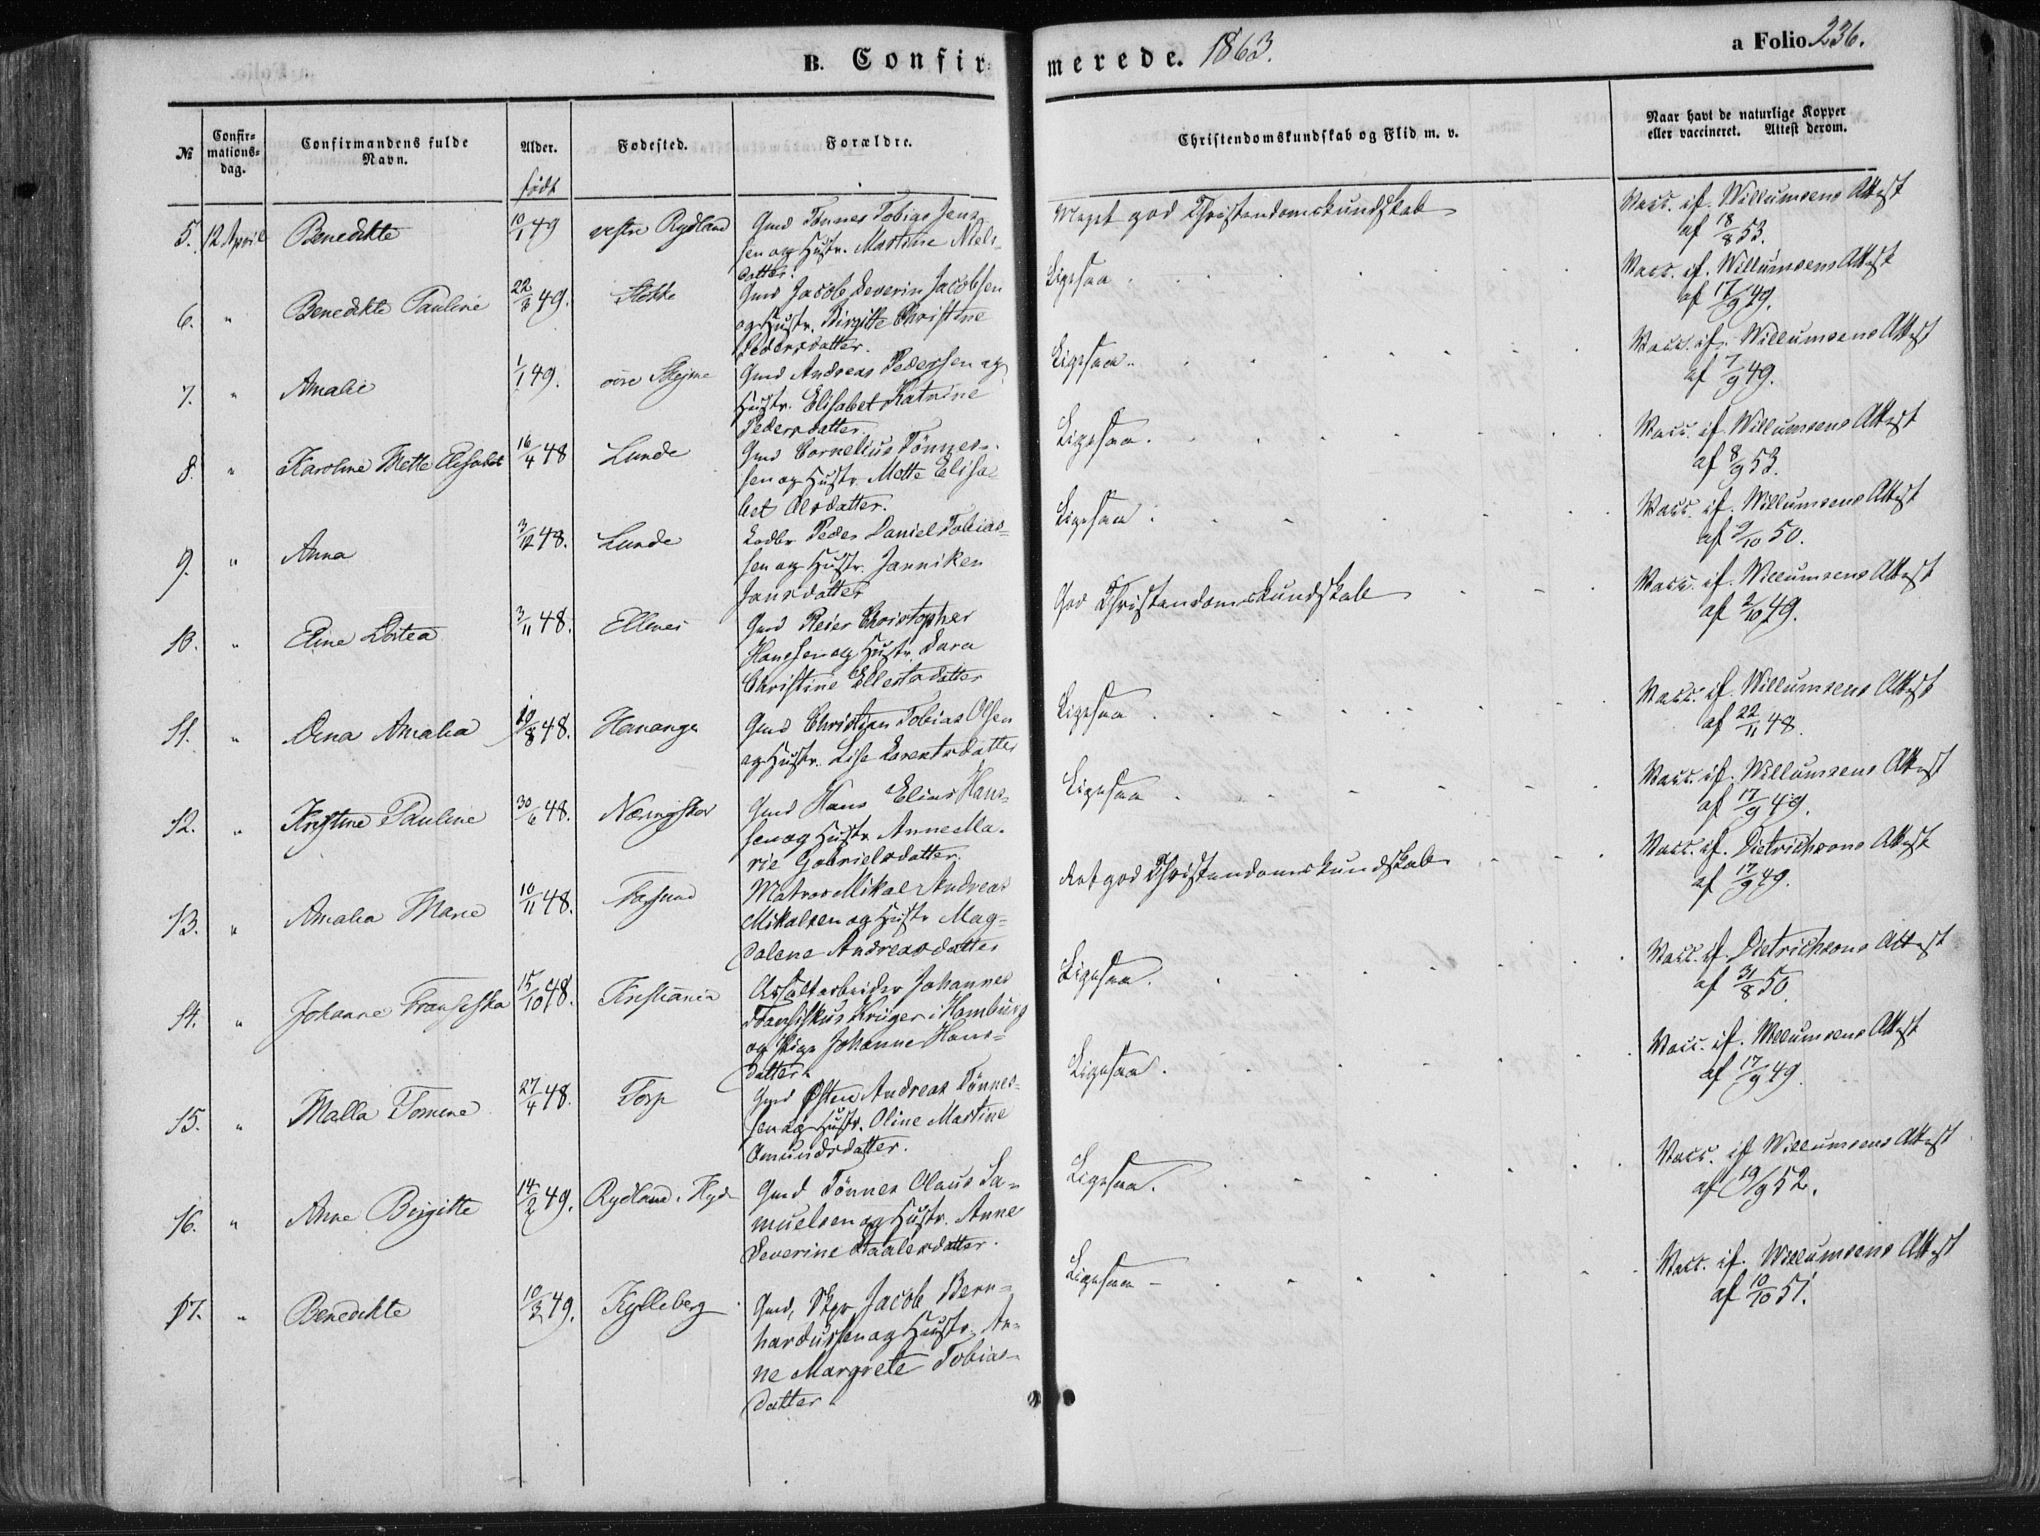 B. Confirmerede. 1863.
a Folio 236.
№ Confirmationsdag. Confirmandens fulde Navn. Alder. Fødested. Forældre. Christendomskundskab og Flid m. v. Naar havt de naturlige Kopper eller vaccineret. Attest derom.
født
5. 12 April Benedikte 10/1 49 vestre Rydland Gmd Tønnes Tobias Jens- Meget god Christendomskundskab Vacc. if. Willumsens Attest
sen og Hustr. Martine Niels- af 18/8 53.
datter.
6. " Benedikte Pauline 22/3 49. Stokke Gmd Jacob Severin Jacobsen Ligesaa Vacc. if. Willumsens Attest
og Hustr. Birgitte Christine af 17/9 49.
Pedersdatter.
7. " Amalie 1/1 49. øvre Skejme Gmd Andreas Pedersen og Ligesaa Vacc. if. Willumsens Attest
Hustr. Elisabet Katrine af 7/9 49.
Pedersdatter.
8. " Karoline Mette Elisabet 16/4 48 Lunde Gmd Cornelius Tønnes- Ligesaa. Vacc. if. Willumsens Attest
sen og Hustr. Mette Elisa- af 8/9 53.
bet Olsdatter.
9. " Anna 3/12 48. Lunde Lodbr Peder Daniel Tobias- Ligesaa Vacc. if. Willumsens Attest
sen og Hustr. Janniken af 2/10 50.
Jansdatter
10. " Eline 3/11 48. Ellenes Gmd Reier Christopher God Christendomskundskab Vacc. if. Willumsens Attest
Hansen og Hustr. Sara af 2/10 49.
Christine Ellertsdatter
11. " Dina Amalia 10/8 48. Hananger Gmd Christian Tobias Olsen Ligesaa Vacc. if. Willumsens Attest
og Hustr. Lise Lorentsdatter af 22/11 48.
12. " Kristine Pauline 30/6 48. Nesingstar Gmd Hans Elias Han- Ligesaa Vacc. if. Willumsens Attest
sen og Hustr Anne Ma- af 17/9 49.
rie Gabrielsdatter.
13. " Amalia Marie 10/11 48. Farsund Matros Mikal Andreas Ret god Christendomskundskab Vacc. if. Dietrichsons Attest
Mikalsen og Hustr Mag- af 17/9 49.
dalene Andreasdatter
14. " Johanne Fransiska 15/10 48. Kristiania Asfaltarbeider Johannes Ligesaa. Vacc. if. Dietrichsons Attest
Fransiskus Krüger i Hamburg af 31/8 50.
og Pige Johanne Hans-
datter
15. " Malla Tomine 27/4 48. Torp Gmd Østen Andreas Tønnes- Ligesaa. Vacc. if. Willumsens Attest
sen og Hustr. Oline Martine af 17/9 49.
Omundsdatter.
16. " Anne Birgitte 14/2 49. Rydland i Hgd Gmd Tønnes Olaus Sa- Ligesaa. Vacc. if Willumsens Attest
muelsen og Hustr. Anne af 19/9 52.
Severine Staalesdatter.
17. " Benedikte 10/3 49. Kylleberg Gmd, Skpr Jacob Bern- Ligesaa Vacc. if. Willumsens Attest
hardussen og Hustr. An- af 10/10 51.
ne Margrete Tobias-
datter